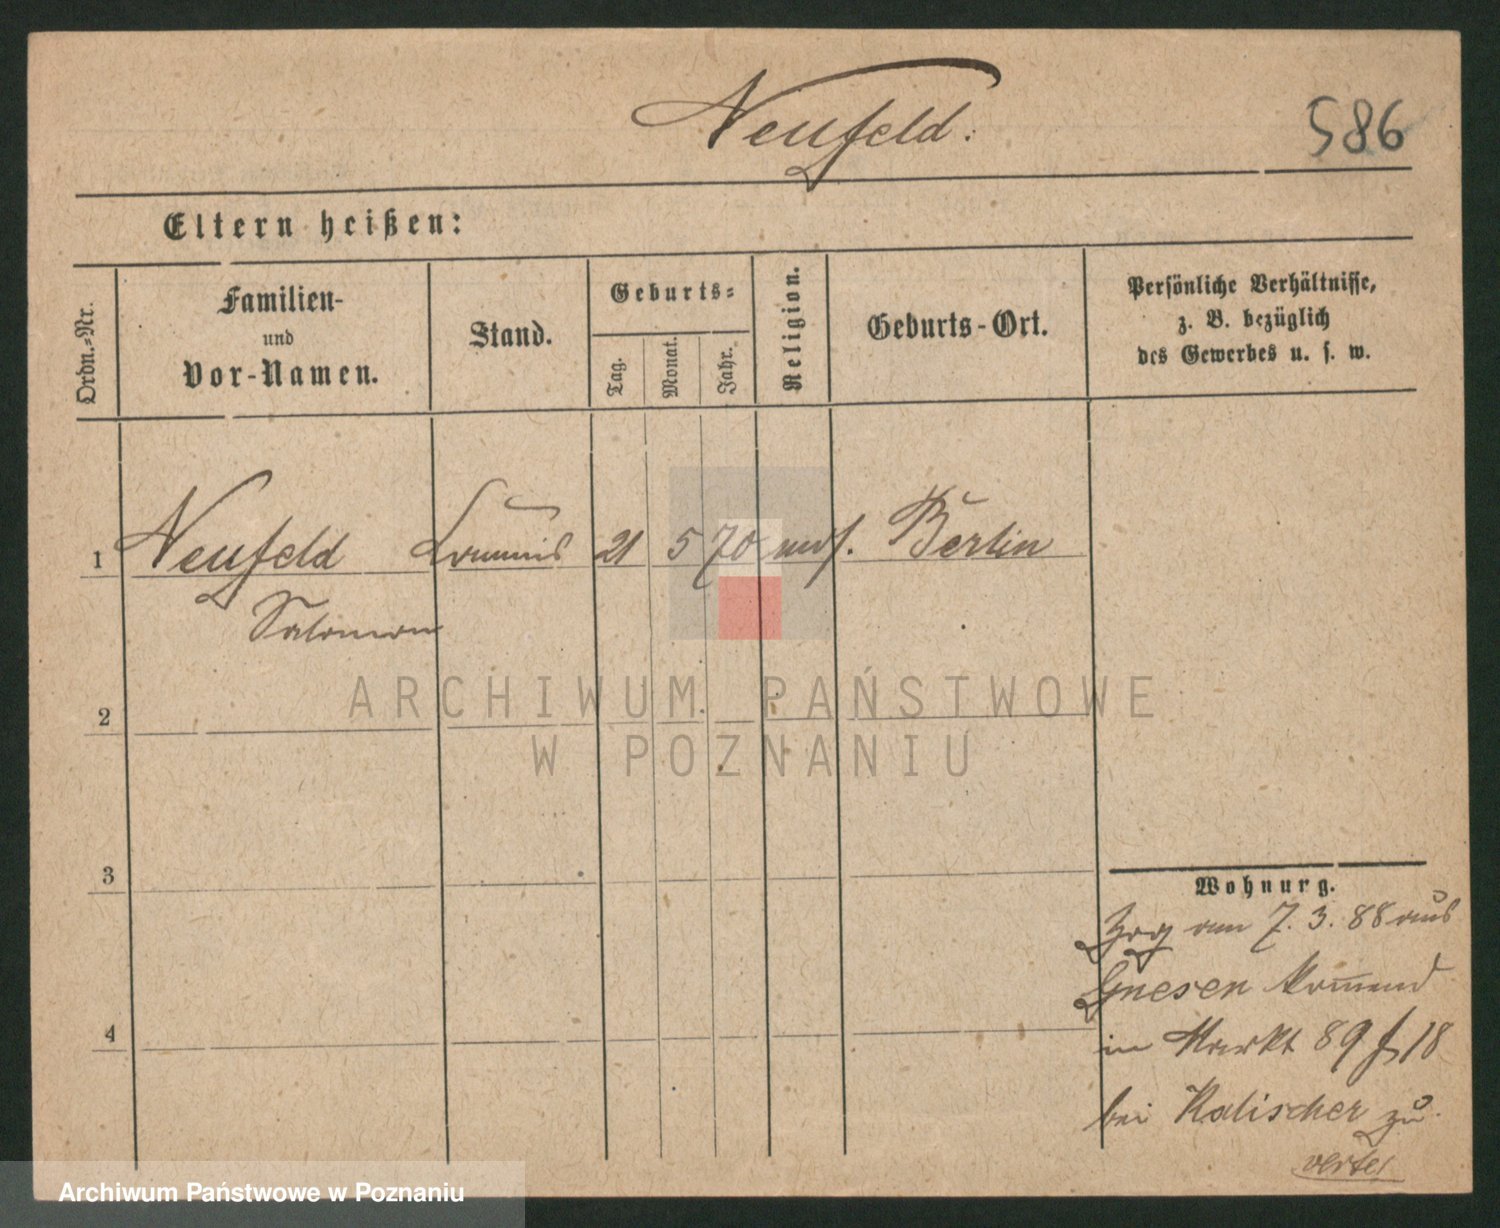 Neufeld.
586
Eltern heißen:
Ordn.-Nr.
Familien-
und
Vor-Namen.
Stand.
Geburts-
Tag.
Monat.
Jahr.
Religion.
Geburts-Ort.
Persönliche Verhältnisse,
z. B. bezüglich
des Gewerbes u. s. w.
1 Neufeld Commis 21 5 70 mos. Berlin
Salomon
ARCHIWUM PAŃSTWOWE
2
W POZNANIU
3
Wohnung.
Zog am 7. 3. 88 aus
Gnesen kommend
4
in Markt 89 18
bei Kalischer zu
verte!
Archiwum Państwowe w Poznaniu